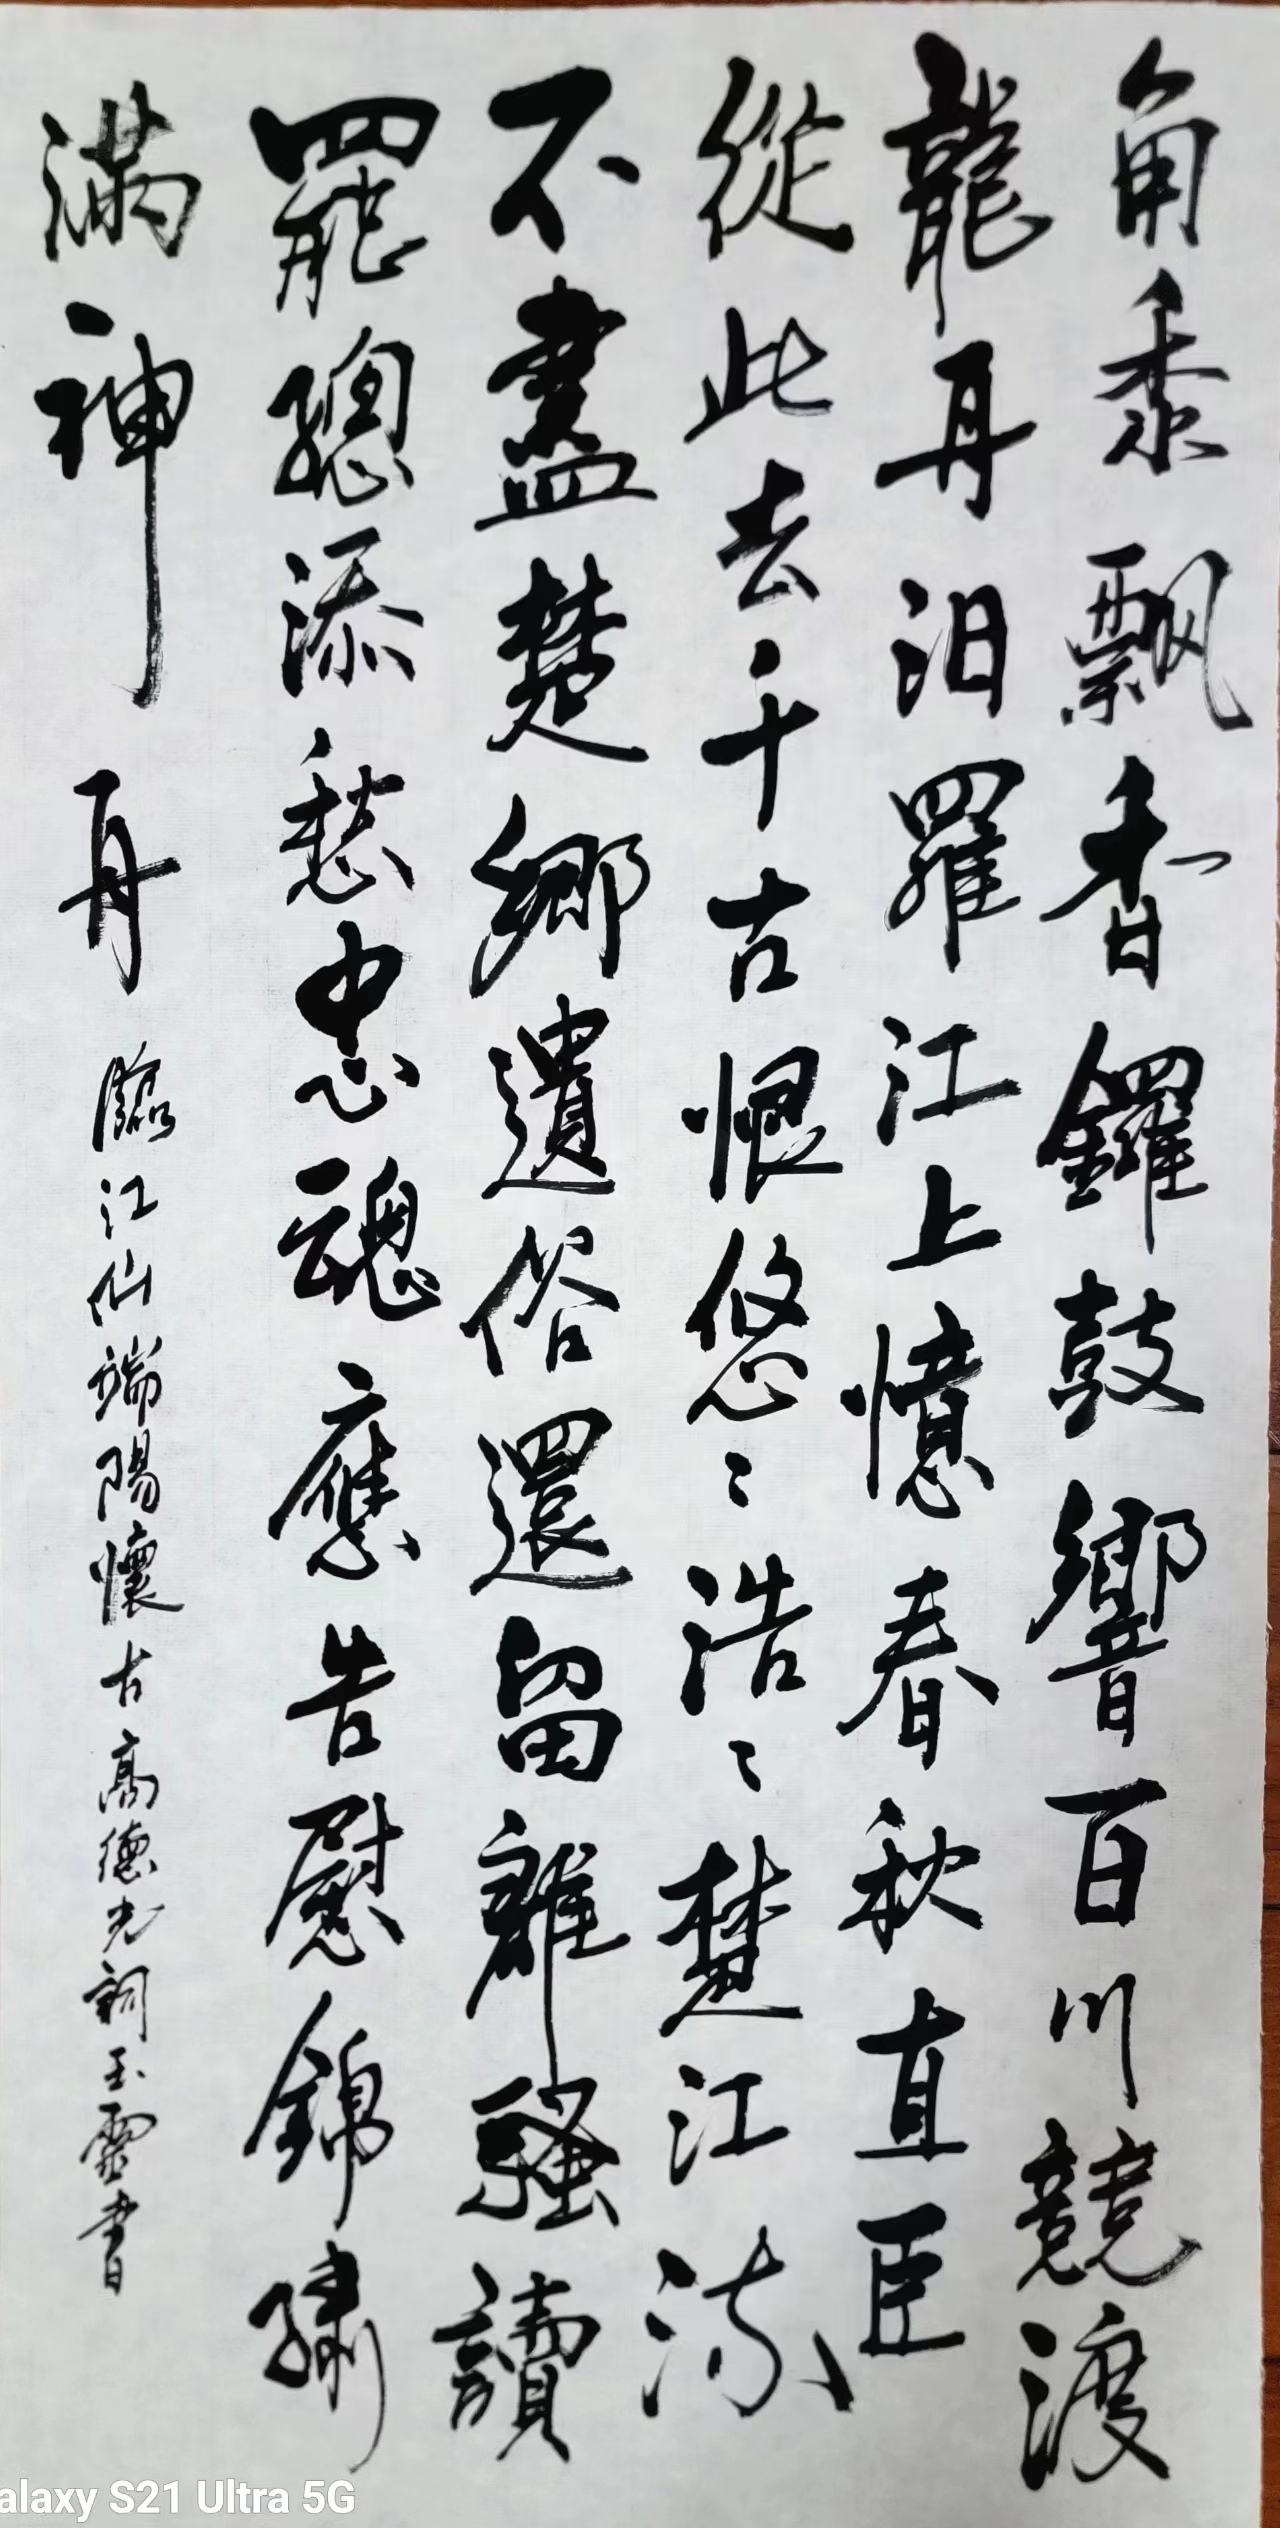 角黍飄香鑼鼓響百川競渡
龍舟汨羅江上憶春秋直臣
從此去千古恨悠〻浩〻楚江流
不盡楚鄉遺俗還留離騷讀
罷總添愁忠魂應告慰錦繡
滿神舟
臨江仙端陽懷古高德光詞玉雲書
alaxy S21 Ultra 5G